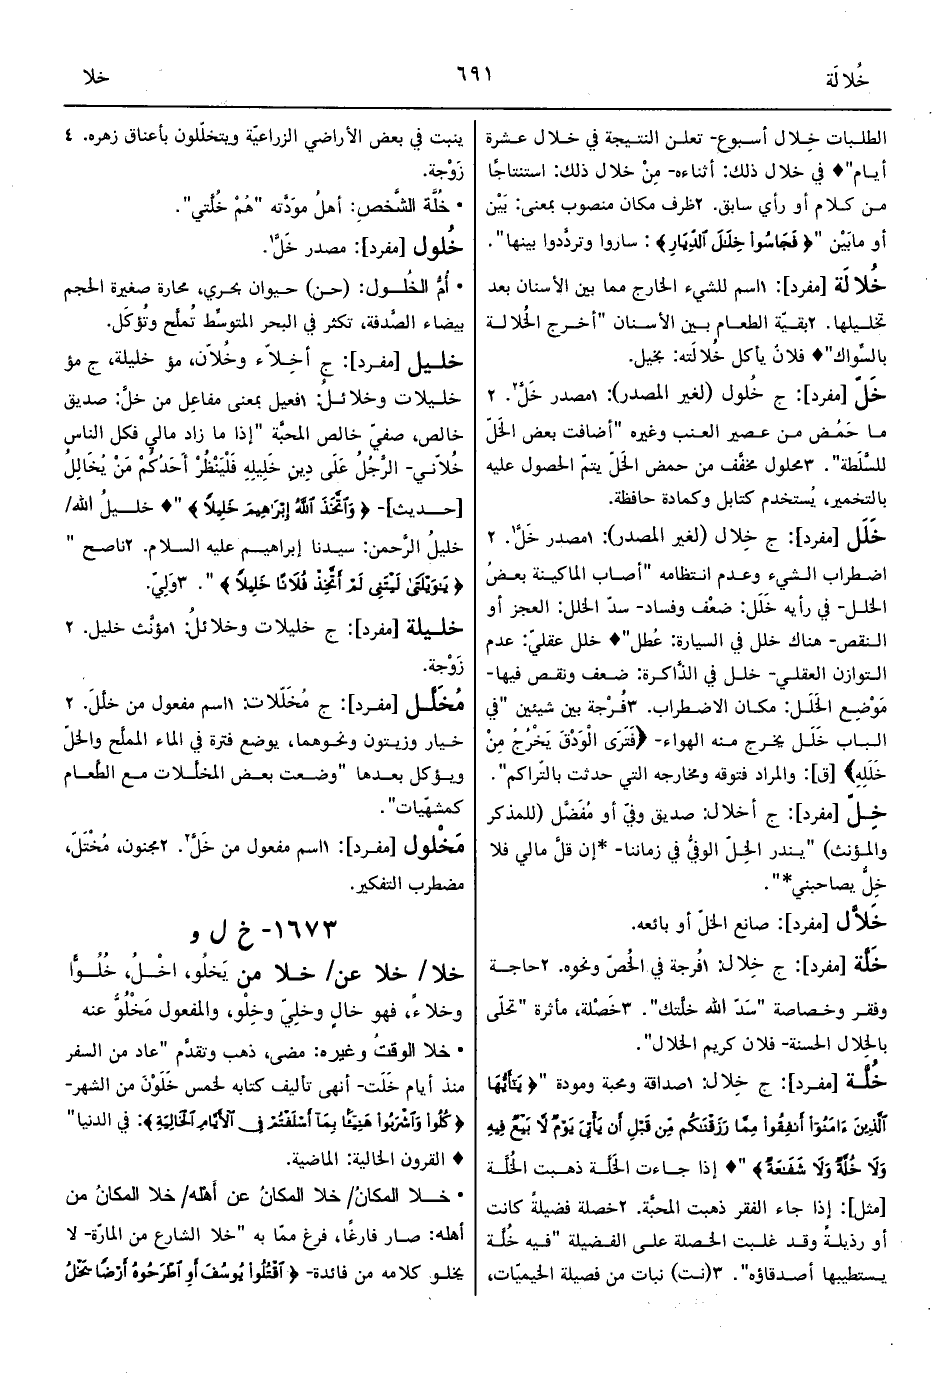 خُلالَة
٦٩١
خلا
الطلبات خِلال أسبوع- تعلن النتيجة في خلال عشرة
أيام"♦ في خلال ذلك: أثناءه- مِنْ خلال ذلك: استنتاجًا
من كلام أو رأي سابق. ٢ظرف مكان منصوب بمعنى: بَيْن
أو مابَيْن "﴿ فَجَاسُوا۟ خِلَٰلَ ٱلدِّيَارِ ﴾: ساروا وتردَّدوا بينها".
خُلالَة [مفرد]: ١اسم للشيء الخارج مما بين الأسنان بعد
تخليلها. ٢بقيّة الطعام بين الأسنان "أخرج الخُلالة
بالسِّواك"♦ فلانٌ يأكل خُلالَته: بخيل.
خَلّ [مفرد]: ج خُلول (لغير المصدر): ١مصدر خَلَّ٢. ٢
ما حَمُض من عصير العنب وغيره "أضافت بعض الخَلّ
للسَّلَطة". ٣محلول مخفَّف من حمض الخَلّ يتمّ الحصول عليه
بالتخمير، يُستخدم كتابل وكمادة حافظة.
خَلَل [مفرد]: ج خِلال (لغير المصدر): ١مصدر خَلَّ١. ٢
اضطراب الشيء وعدم انتظامه "أصاب الماكينة بعضُ
الخلل- في رأيه خَلَل: ضعْف وفساد- سدّ الخلل: العجز أو
النقص- هناك خلل في السيارة: عُطل"♦ خلل عقليّ: عدم
التوازن العقلي- خلل في الذَّاكرة: ضعف ونقص فيها-
مَوْضِع الخَلَل: مكان الاضطراب. ٣فُرْجة بين شيئين "في
الباب خَلَل يخرج منه الهواء- ﴿فَتَرَى الْوَدْقَ يَخْرُجُ مِنْ
خَلَلِهِ﴾ [ق]: والمراد فتوقه ومخارجه التي حدثت بالتّراكم".
خِلّ [مفرد]: ج أخلال: صديق وفيّ أو مُفَضَّل (للمذكر
والمؤنث) "يندر الخِلّ الوفيُّ في زماننا- *إن قلَّ مالي فلا
خِلٌّ يصاحبني*".
خَلَّال [مفرد]: صانع الخلّ أو بائعه.
خَلَّة [مفرد]: ج خِلال: ١فُرجة في الخُصّ ونحوه. ٢حاجة
وفقر وخصاصة "سَدّ الله خلّتك". ٣خَصْلة، مأثرة "تحلّى
بالخِلال الحسنة- فلان كريم الخلال".
خُلَّة [مفرد]: ج خِلال: ١صداقة ومحبة ومودة "﴿ يَٰٓأَيُّهَا
ٱلَّذِينَ ءَامَنُوٓا۟ أَنفِقُوا۟ مِمَّا رَزَقْنَٰكُم مِّن قَبْلِ أَن يَأْتِىَ يَوْمٌ لَّا بَيْعٌ فِيهِ
وَلَا خُلَّةٌ وَلَا شَفَٰعَةٌ ﴾ "♦ إذا جاءت الخَلَّة ذهبت الخُلَّة
[مثل]: إذا جاء الفقر ذهبت المحبَّة. ٢خصلة فضيلةً كانت
أو رذيلةً وقد غلبت الخصلة على الفضيلة "فيه خُلَّة
يستطيبها أصدقاؤه". ٣(نت) نبات من فصيلة الخيميّات،
ينبت في بعض الأراضي الزراعيّة ويتخلّلون بأعناق زهره. ٤
زَوْجة.
• خُلَّة الشَّخصِ: أهلُ مودّته "هُمْ خُلَّتي".
خُلُول [مفرد]: مصدر خَلَّ١.
• أُمُّ الخُلول: (حن) حيوان بحري، محارة صغيرة الحجم
بيضاء الصَّدفة، تكثر في البحر المتوسِّط تُملّح وتُؤكَل.
خليل [مفرد]: ج أخِلاّء وخُلاّن، مؤ خليلة، ج مؤ
خليلات وخلائلُ: ١فعيل بمعنى مفاعِل من خلَّ: صديق
خالص، صفيّ خالص المحبَّة "إذا ما زاد مالي فكل الناس
خُلاّني- الرَّجُلُ عَلَى دِينِ خَلِيلِهِ فَلْيَنْظُرْ أَحَدُكُمْ مَنْ يُخَالِلُ
[حديث]- ﴿ وَٱتَّخَذَ ٱللَّهُ إِبْرَٰهِيمَ خَلِيلًا ﴾ "♦ خليلُ الله/
خليلُ الرَّحمن: سيدنا إبراهيم عليه السلام. ٢ناصح "
﴿ يَٰوَيْلَتَىٰ لَيْتَنِى لَمْ أَتَّخِذْ فُلَانًا خَلِيلًا ﴾ ". ٣وَلِيّ.
خليلة [مفرد]: ج خليلات وخلائلُ: ١مؤنَّث خليل. ٢
زَوْجة.
مُخَلَّل [مفرد]: ج مُخَلّلات: ١اسم مفعول من خلّلَ. ٢
خيار وزيتون ونحوهما، يوضع فترة في الماء المملّح والخلّ
ويؤكل بعدها "وضعت بعض المخلّلات مع الطَّعام
كمشهّيات".
مَخْلول [مفرد]: ١اسم مفعول من خَلَّ٢. ٢مجنون، مُخْتَلّ،
مضطرب التفكير.
١٦٧٣- خ ل و
خلا/ خلا عن/ خلا من يَخلُو، اخْلُ، خُلُوًّا
وخلاءً، فهو خالٍ وخلِيّ وخِلْو، والمفعول مَخْلُوٌّ عنه
• خلا الوقتُ وغيره: مضى، ذهب وتقدَّم "عاد من السفر
منذ أيام خَلَت- أنهى تأليف كتابه لخمس خَلَوْنَ من الشهر-
﴿ كُلُوا۟ وَٱشْرَبُوا۟ هَنِيٓـًٔۢا بِمَآ أَسْلَفْتُمْ فِى ٱلْأَيَّامِ ٱلْخَالِيَةِ ﴾: في الدنيا"
♦ القرون الخالية: الماضية.
• خلا المكانُ/ خلا المكانُ عن أهله/ خلا المكانُ من
أهله: صار فارغًا، فرغ ممّا به "خلا الشارع من المارّة- لا
يخلو كلامه من فائدة- ﴿ ٱقْتُلُوا۟ يُوسُفَ أَوِ ٱطْرَحُوهُ أَرْضًا يَخْلُ